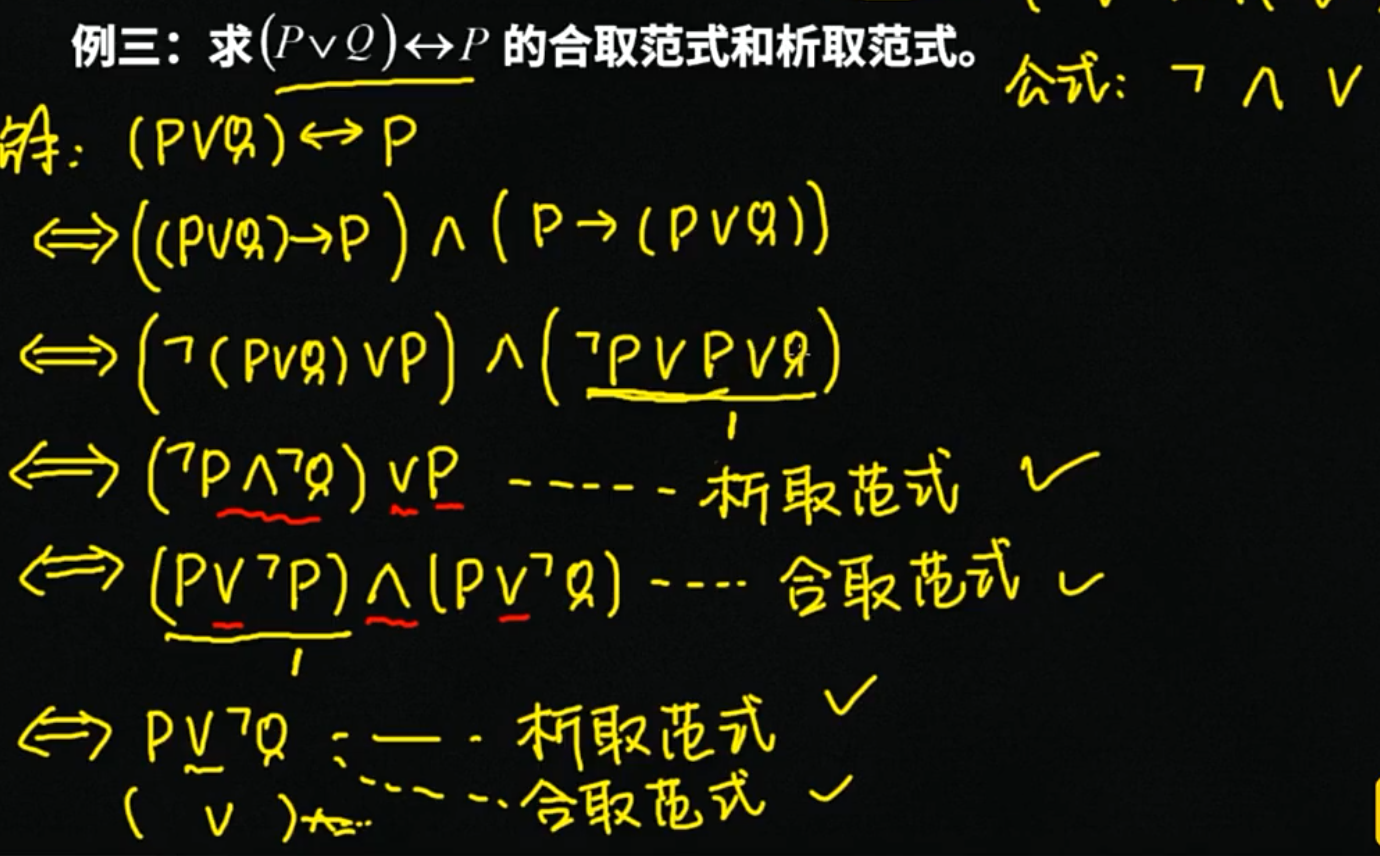 例三：求(P∨Q)↔P 的合取范式和析取范式。
公式: ¬ ∧ ∨
解: (P∨Q)↔P
⇔((P∨Q)→P)∧(P→(P∨Q))
⇔(¬(P∨Q)∨P)∧(¬P∨P∨Q)
1
⇔(¬P∧¬Q)∨P ----- 析取范式 ✓
⇔(P∨¬P)∧(P∨¬Q) ---- 合取范式 ✓
1
⇔P∨¬Q ---- 析取范式 ✓
( ∨ ) ---- 合取范式 ✓